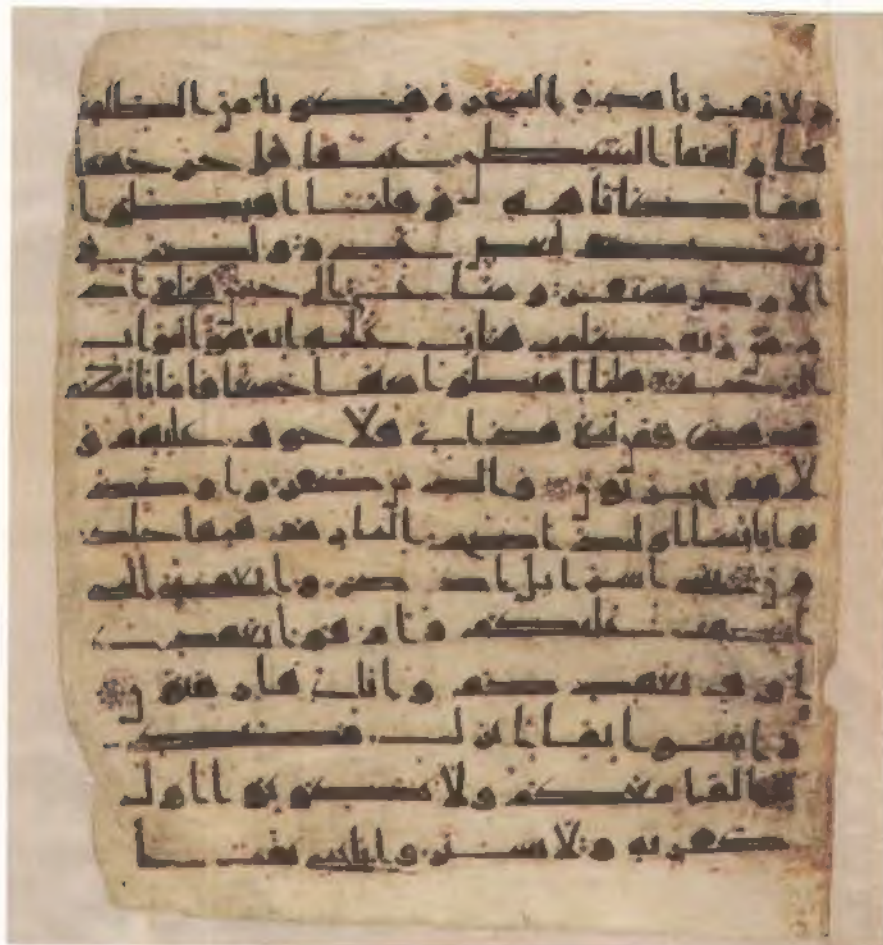 ولا تقربا هذه الشجرة فتكونا من الظلمين
فازلهما الشيطن عنها فاخرجهما
مما كانا فيه وقلنا اهبطوا
بعضكم لبعض عدو ولكم في
الارض مستقر ومتع الى حين فتلقى اد
م من ربه كلمت فتاب عليه انه هو التواب
الرحيم قلنا اهبطوا منها جميعا فاما ياتينكم
منى هدى فمن تبع هداى فلا خوف عليهم و
لا هم يحزنون والذين كفروا وكذ
بوا بايتنا اولئك اصحب النار هم فيها خلد
ون يبنى اسريل اذكروا نعمتى التى
انعمت عليكم واوفوا بعهدى
اوف بعهدكم واياى فارهبون
وامنوا بما انزلت مصدقا
لما معكم ولا تكونوا اول
كفر به ولا تشتروا بايتى ثمنا